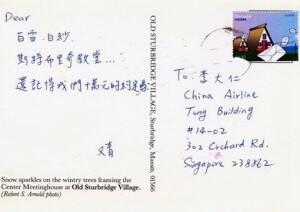 Dear
白雪、白紗
斯特布里奇教堂...
還記得我們十萬元的約定嗎
文青
Snow sparkles on the wintry trees framing the
Center Meetinghouse at Old Sturbridge Village.
(Robert S. Arnold photo)
OLD STURBRIDGE VILLAGE, Sturbridge, Mass. 01566
To: 李大仁
China Airline
Tong Building
#14-02
302 Orchard Rd.
Singapore 238862